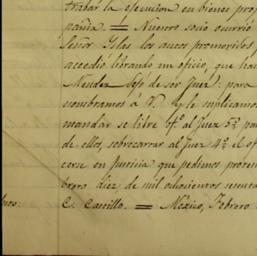 trabar la ejecucion en bienes prop
pañia = Nuestro socio ocurrió
Señor Islas los autos promovidos
accedió librando un oficio, que ha
Mendez dejó de ser Juez: para
nombramos a V. y le suplicamos
mandar se libre of.º al Juez 5.º pa
de ellos, sobrecartar al Juez 4.º el of
cerse en Justicia que pedimos protes
brero diez de mil ochocientos
C. Carrillo. = México, Febrero